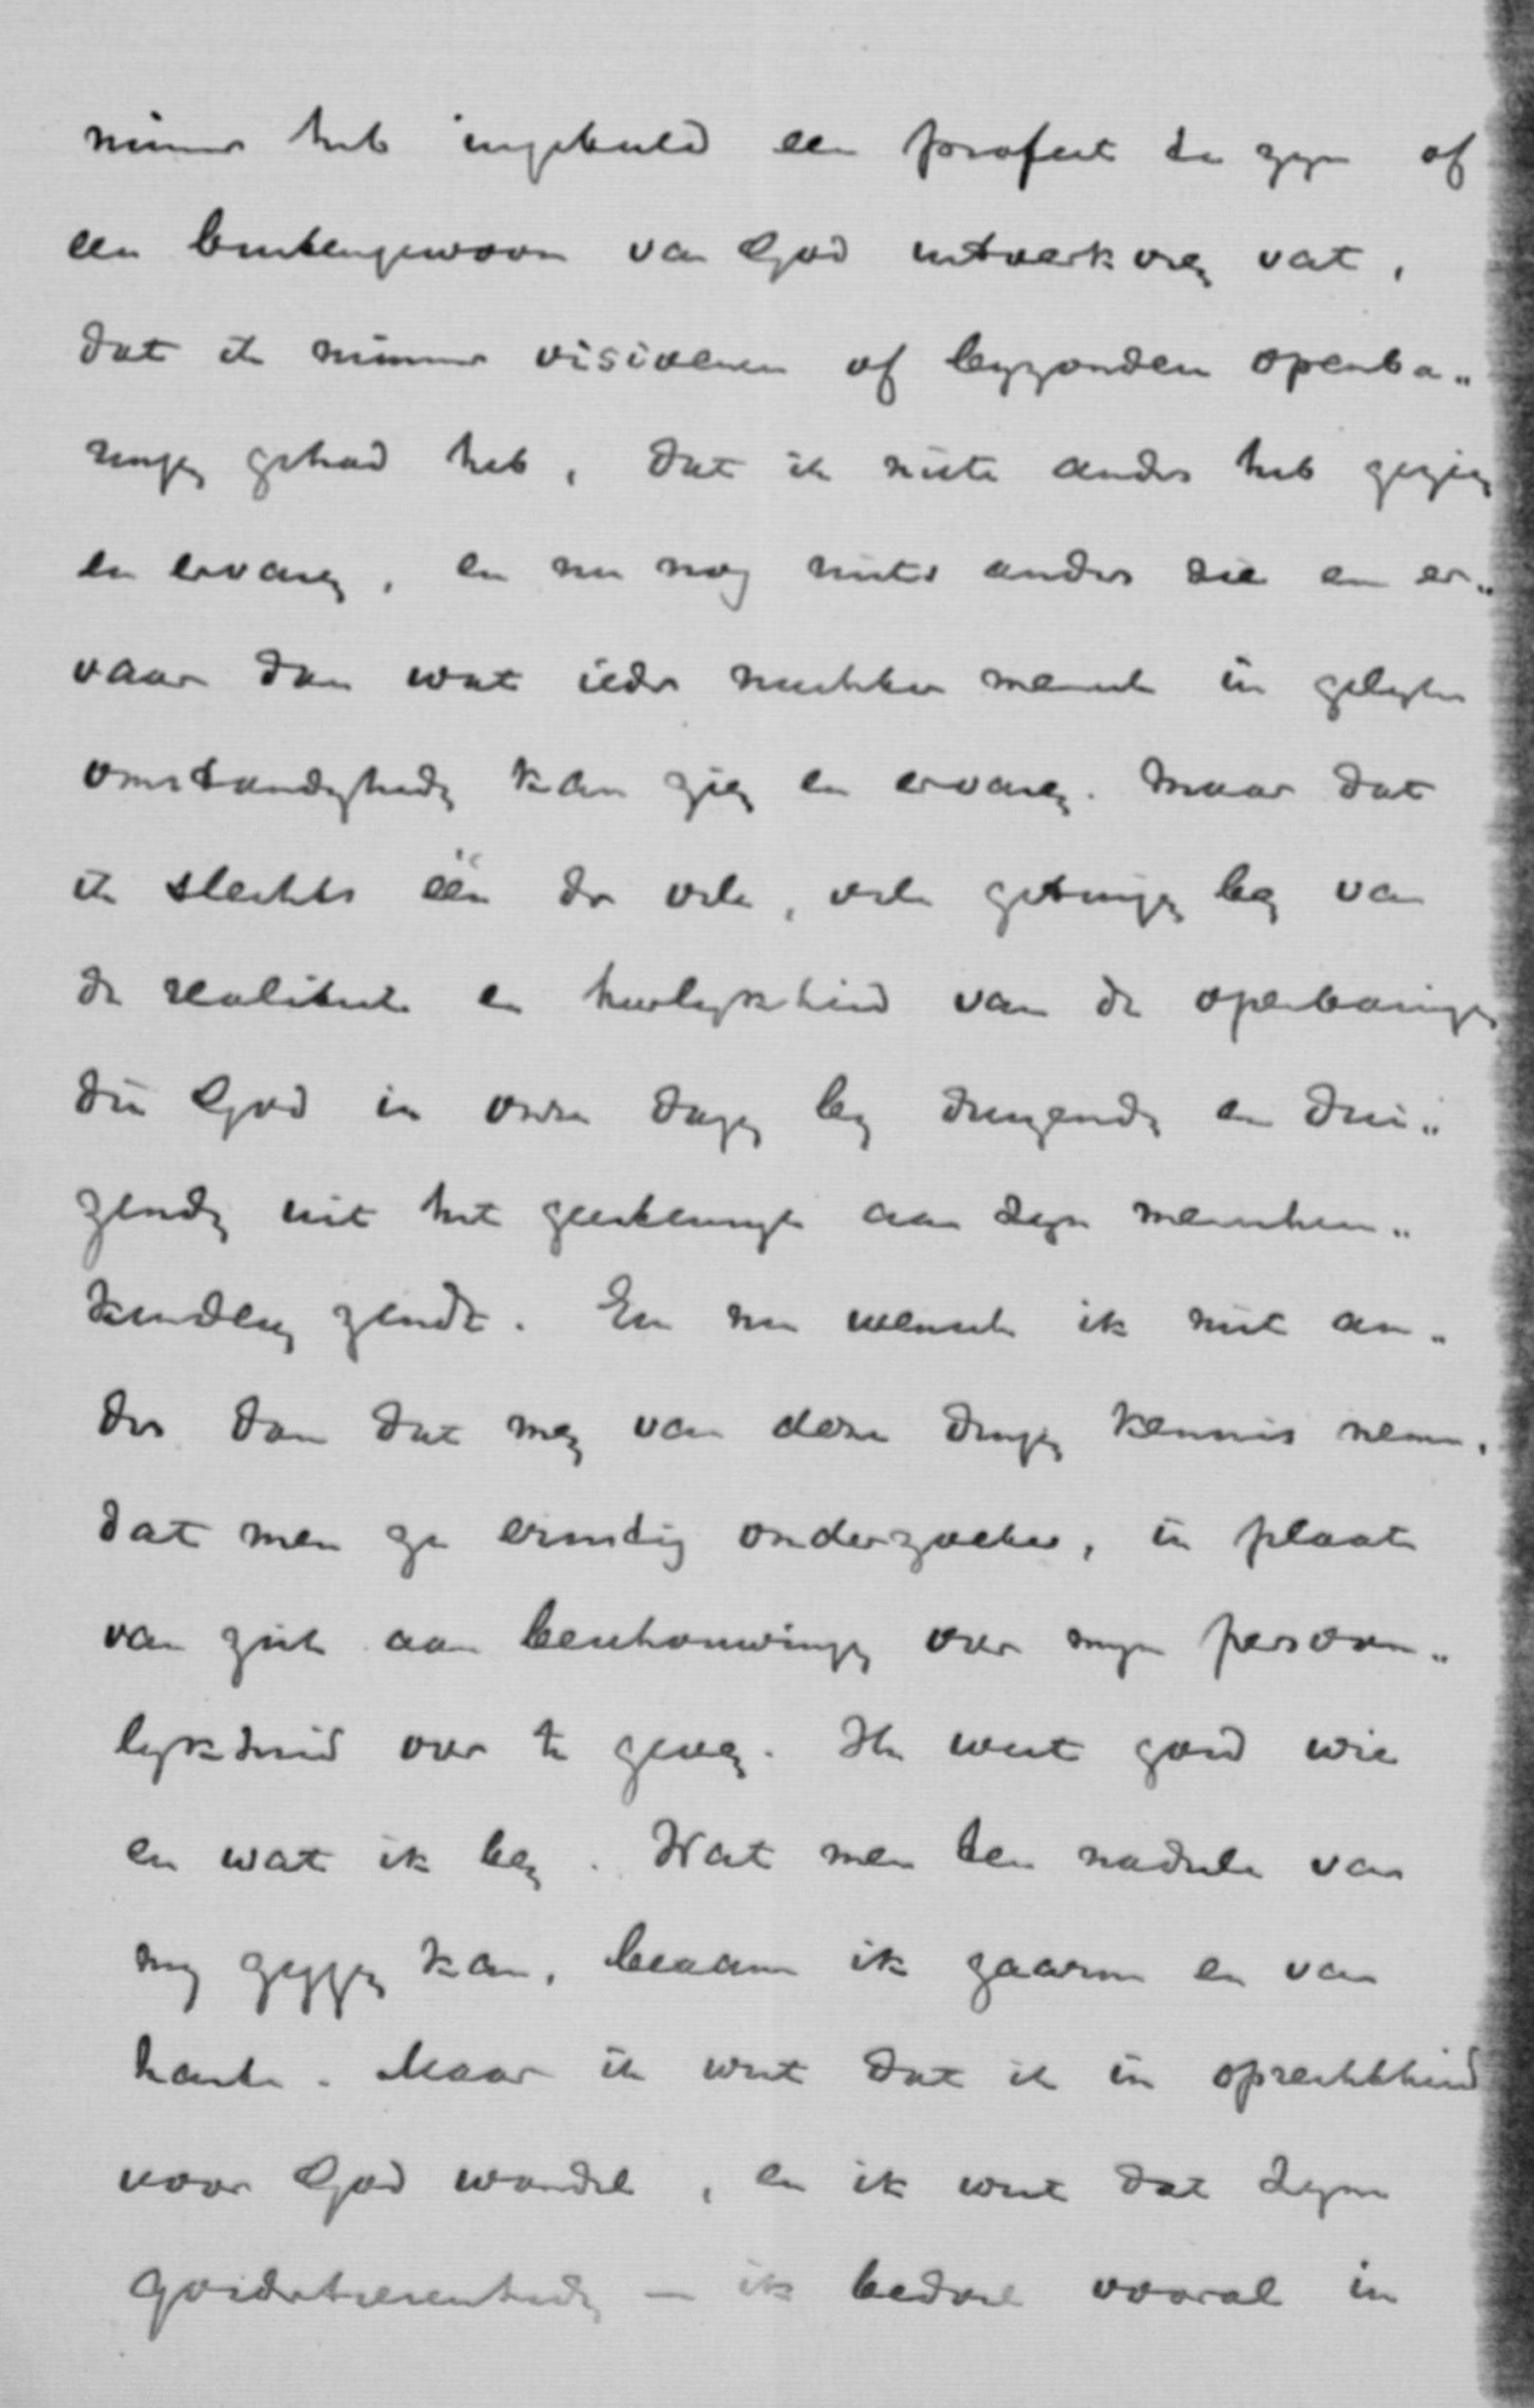 nimmer heb ingebeeld een profeet te zyn of
een buitengewoon van God uitverkoren vat,
dat ik nimmer visioenen of byzondere openba„
ringen gehad heb, dat ik niets anders heb gezien
en ervaren, en nu nog niets anders zie en er„
vaar dan wat ieder nuchter mensch in gelyke
omstandigheden kan zien en ervaren. Maar dat
ik slechts één der vele, vele getuigen ben van
de realiteit en heerlykheid van de openbaringen
die God in onze dagen by duizenden en dui„
zenden uit het geestenryk aan Zyn menschen„
kinderen zendt. En nu wensch ik niet an„
ders dan dat men van deze dingen kennis neme,
dat men ze ernstig onderzoeke, in plaats
van zich aan beschouwingen over myn persoon„
lykheid over te geven. Ik weet goed wie
en wat ik ben. Wat men ten nadeele van
my zeggen kan, beaam ik gaarne en van
harte. Maar ik weet dat ik in oprechtheid
voor God wandel, en ik weet dat Zyne
goedertierenheden — ik bedoel vooral in